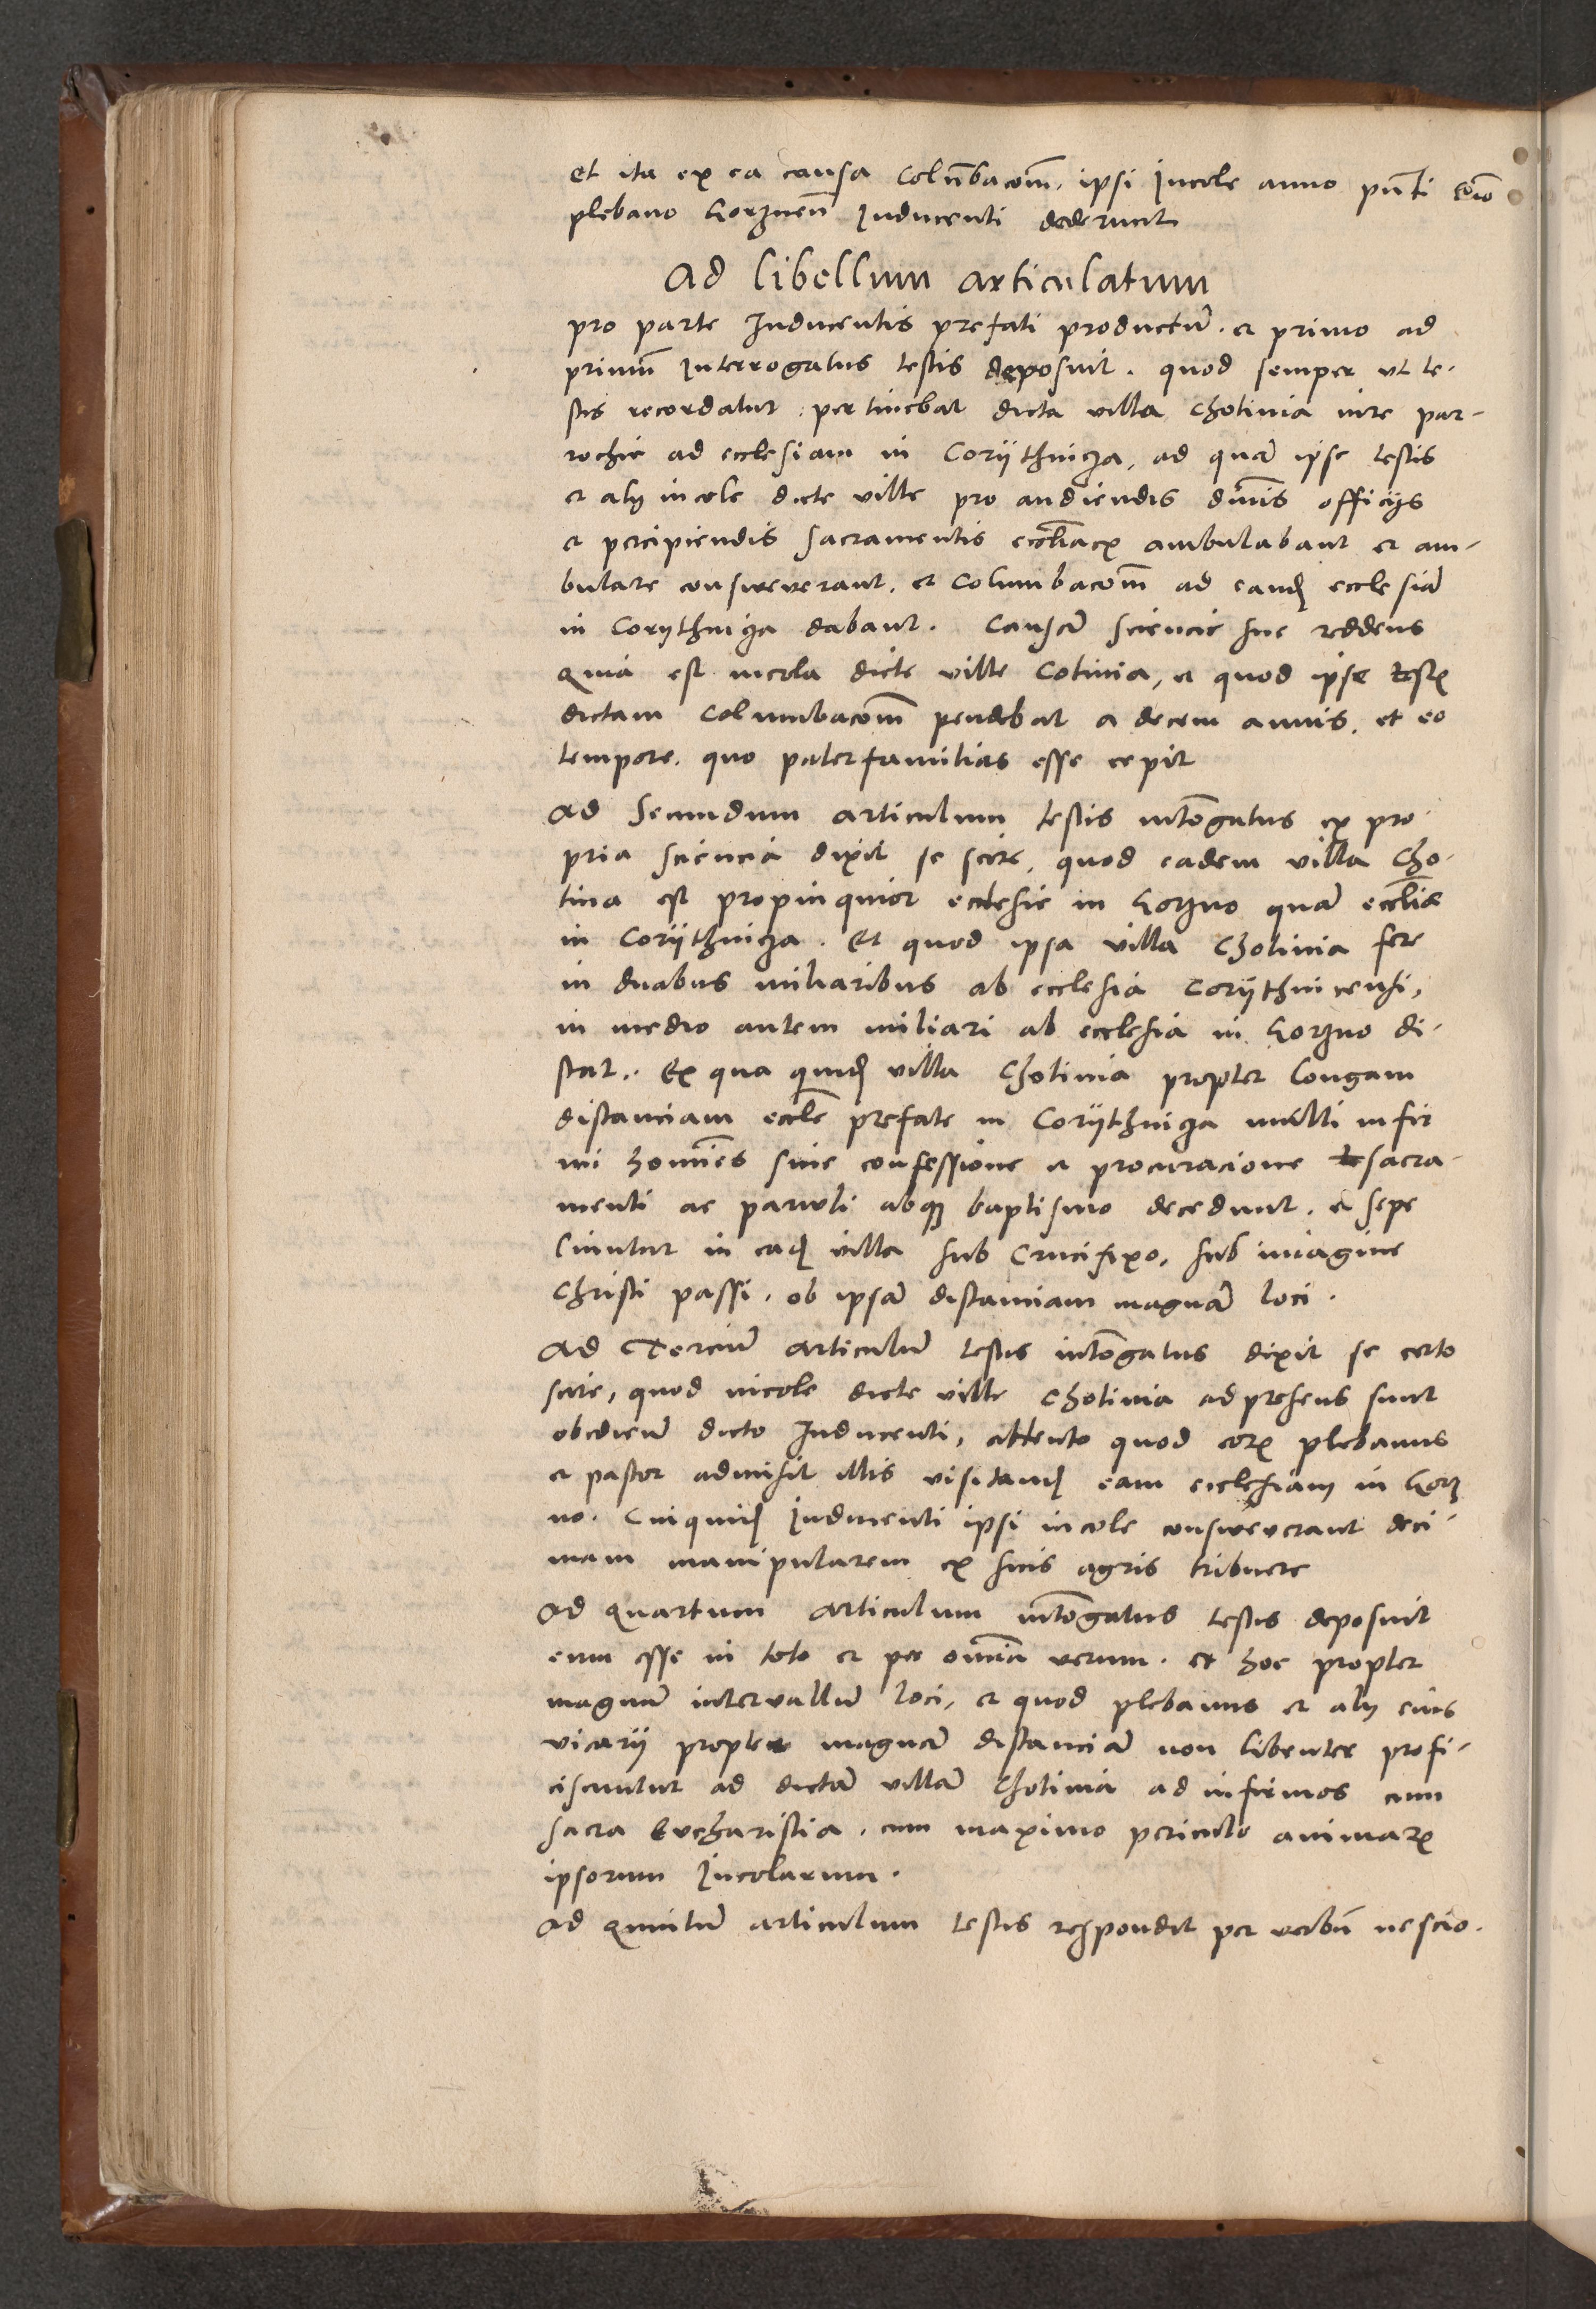 et ita ex ea causa Colūbacom̄, ipsi Incole anno pn̄ti
plebano Gorznen̄ Inducenti dederunt
Ad libellum articulatum
pro parte Inducentis prefati productū. et primo ad
primū Interrogatus testis deposuit. quod semper ut te-
stis recordatur. pertinebat dicta villa Chotinia iure par-
rochie ad ecclesiam in Corÿthnicza, ad quā ipse testis
et alij incole dicte ville pro audiendis diuis officijs
et percipiendis sacramentis eccliacꝝ ambulabant et am-
bulare consueuerant. et Columbacom̄ ad eandꝫ ecclesiā
in Corythnicza dabant. Causā sciencie sue reddens
quia est incola dicte ville Cotinia, et quod ipse testis
dictam Columbacom̄ pendebat a decem annis. et eo
tempore. quo paterfamilias esse cepit
Ad Secundum articulum testis intōgatus ex pro-
pria sciencia dixit se scire, quod eadem villa Cho-
tinia est propinquior ecclesie in Gorzno quā eccliæ
in Corÿthnicza. Et quod ipsa villa Chotinia fere
in duabus miliaribus ab ecclesia Corÿthnicensi,
in medio autem miliari ab ecclesia in Gorzno di-
stat. Ex qua quidꝫ villa Chotinia propter longam
distanciam eccle prefate in Corÿthnicza multi infir
mi homīes sine confessione et procuracione sacra-
menti ac paruuli absqꝫ baptismo decedunt. et sepe
linūtur in eadꝫ villa sub Crucifixo, sub imagine
Christi passi. ob ipsā distanciam magnā loci.
Ad Terciū articulū testis intōgatus dixit se certo
scire, quod incole dicte ville Chotinia ad presens sunt
obedienī dicto Inducenti, attento quod eorꝫ plebanus
et pastor admisit illis visitandꝫ eam ecclesiam in Gorz
no. Cui quidꝫ Inducenti ipsi incole consueuerant deci-
mam manipularem ex suis agris tribuere
Ad quartum articulum intōgatus testis deposuit
eum esse in toto et per omnia verum. et hoc propter
magnū interuallū loci, et quod plebanus et alij eius
vicarij propter magnā distanciā non libenter profi-
ciscuntur ad dictā villā Chotinia ad infirmos cum
sacra Eucharistia. cum maximo periculo animarꝫ
ipsorum Incolarum.
Ad quintū articulum testis respondit per verbū nescio.